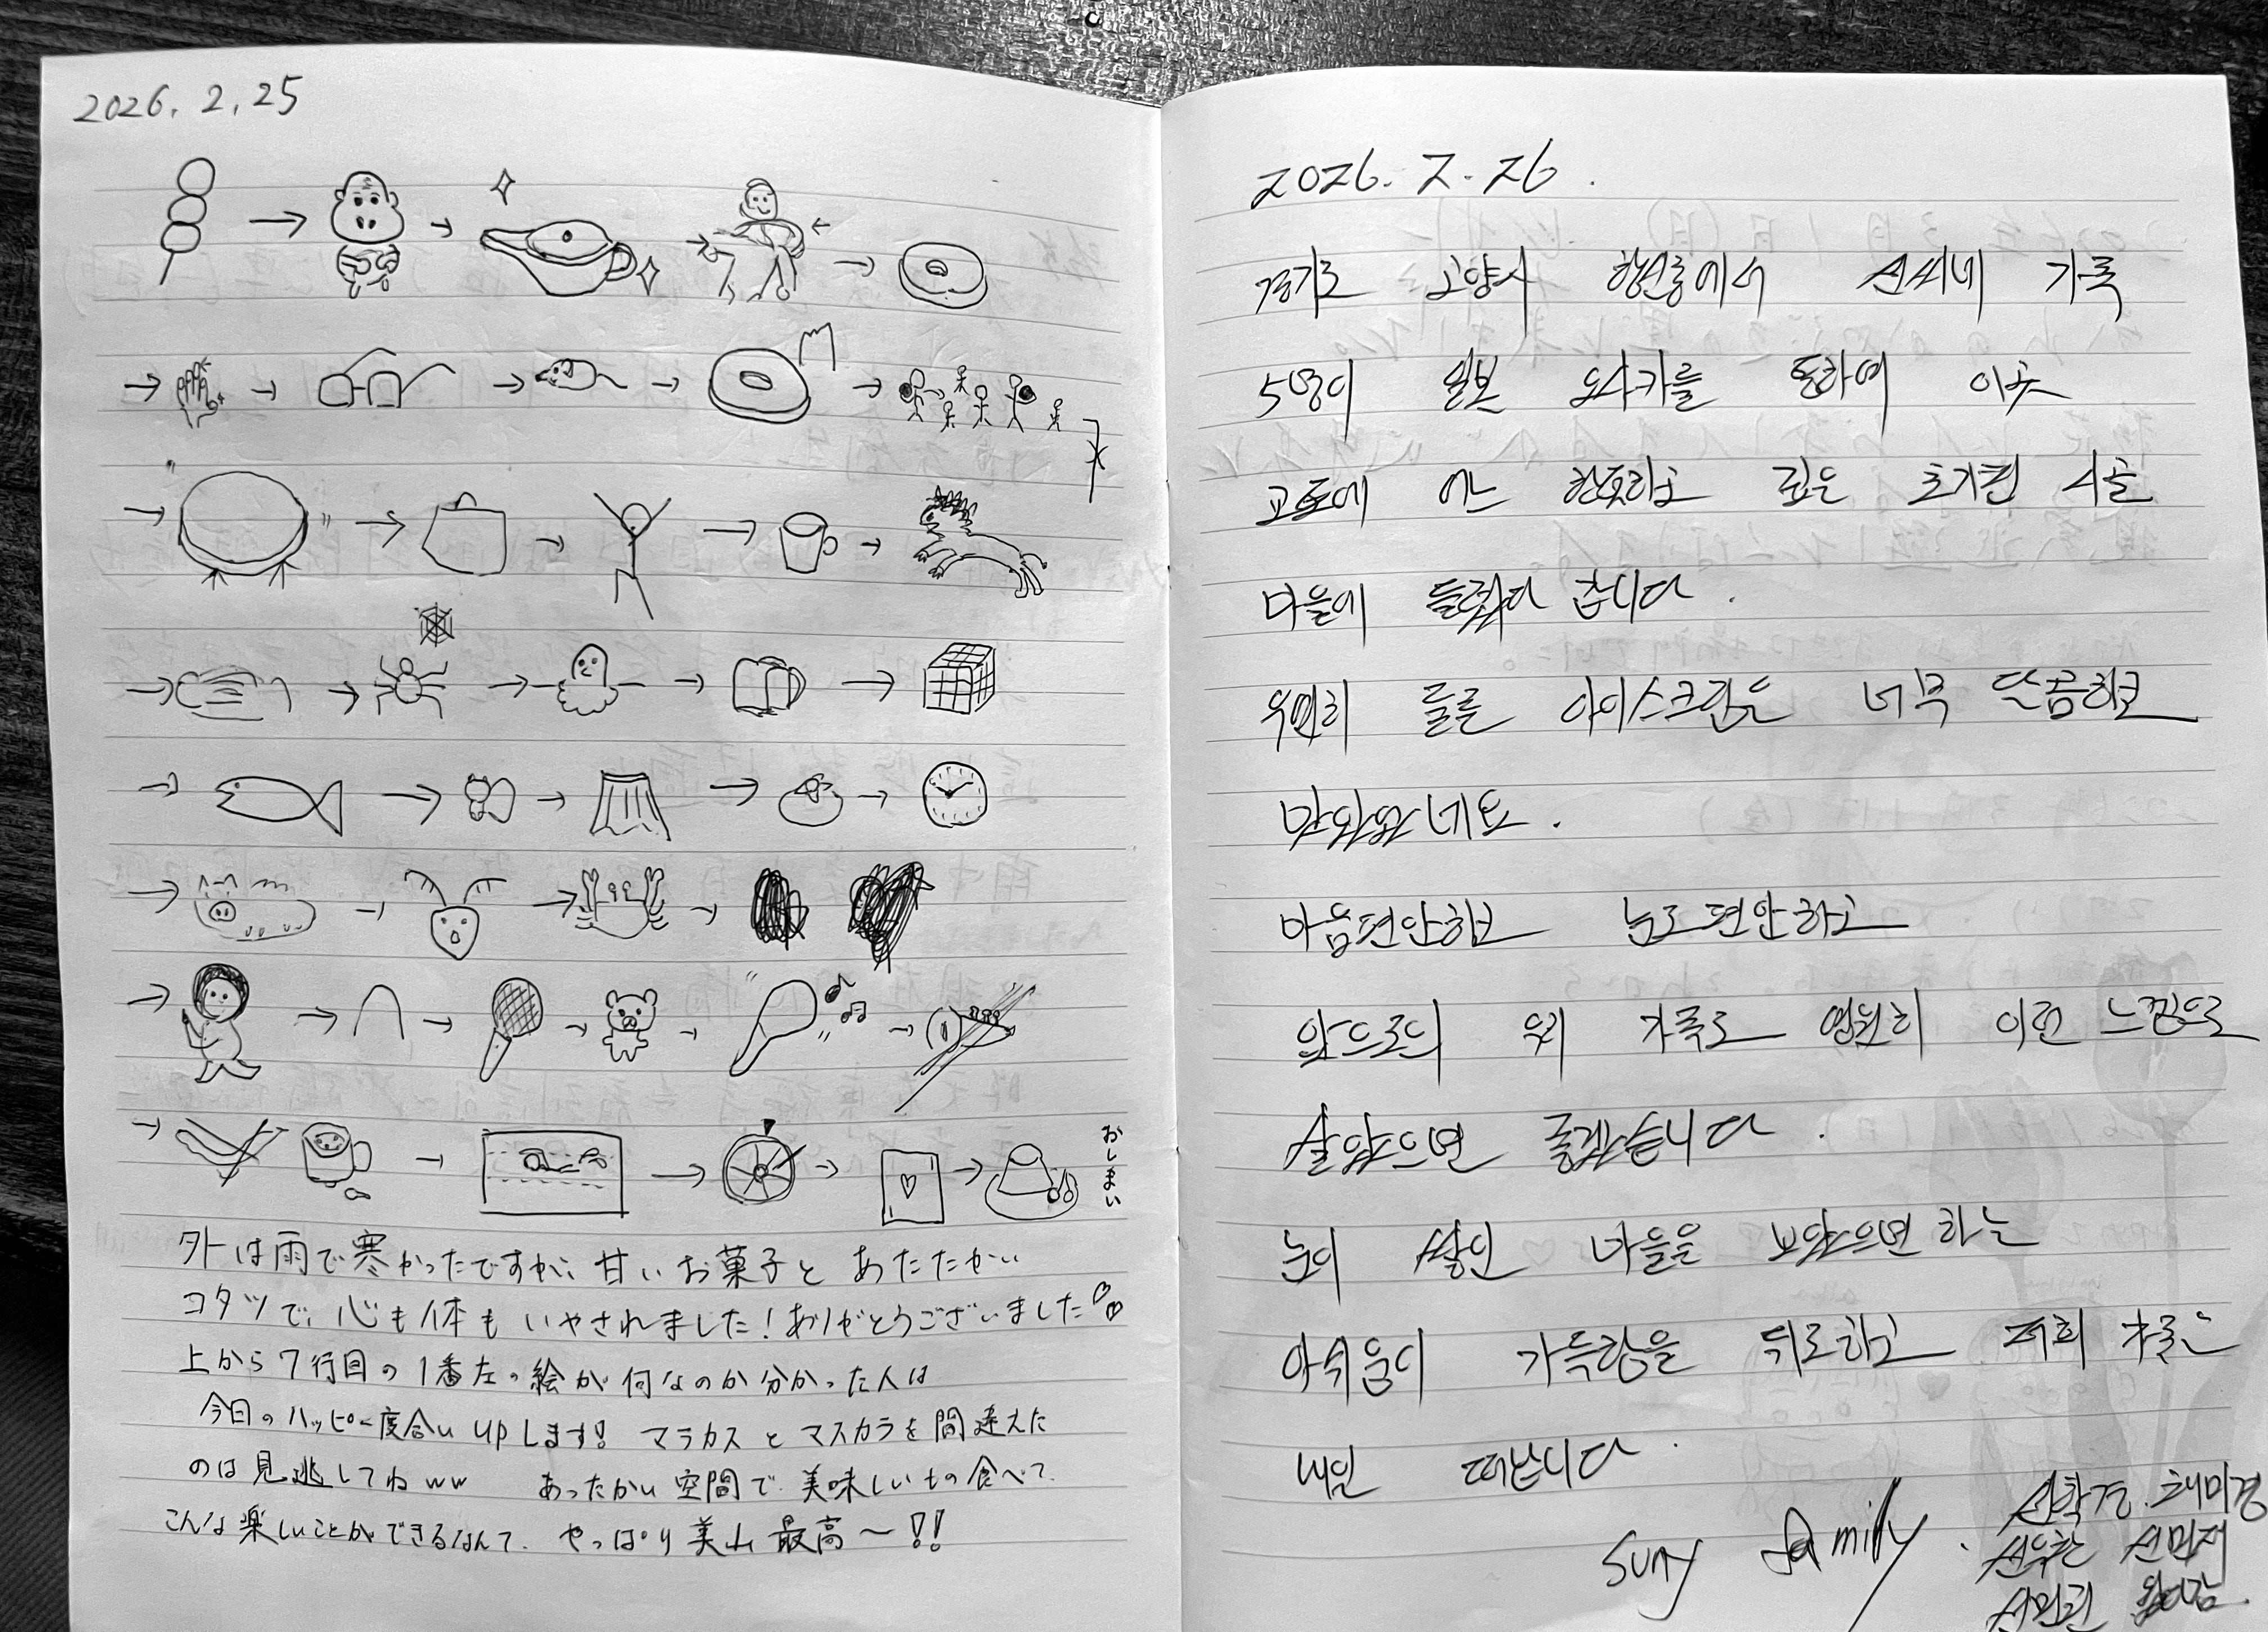 2026. 2. 25
おしまい
外は雨で寒かったですが、甘いお菓子とあたたかい
コタツで、心も体もいやされました！ありがとうございました♡♡
上から7行目の1番左の絵が何なのか分かった人は
今日のハッピー度合いupします! マラカスとマスカラを間違えた
のは見逃してねww あったかい空間で美味しいもの食べて、
こんな楽しいことができるなんて、やっぱり美山最高〜!!
2026. 2. 26.
경기도 고양시 에서 선씨네 가족
5명이 일본 오사카를 통하여 이곳
교토에 어느 한적하고 깊은 초가집 시골
마을에 들렸다 갑니다.
우연히 들른 아이스크림은 너무 달콤하고
맛있었네요.
마음편안하고 눈도편안하고
앞으로의 우리 가족도 영원히 이런 느낌으로
살았으면 좋겠습니다.
눈이 쌓인 마을을 보았으면 하는
아쉬움이 가득함을 뒤로하고 저희 가족은
내일 떠납니다.
Suny family.